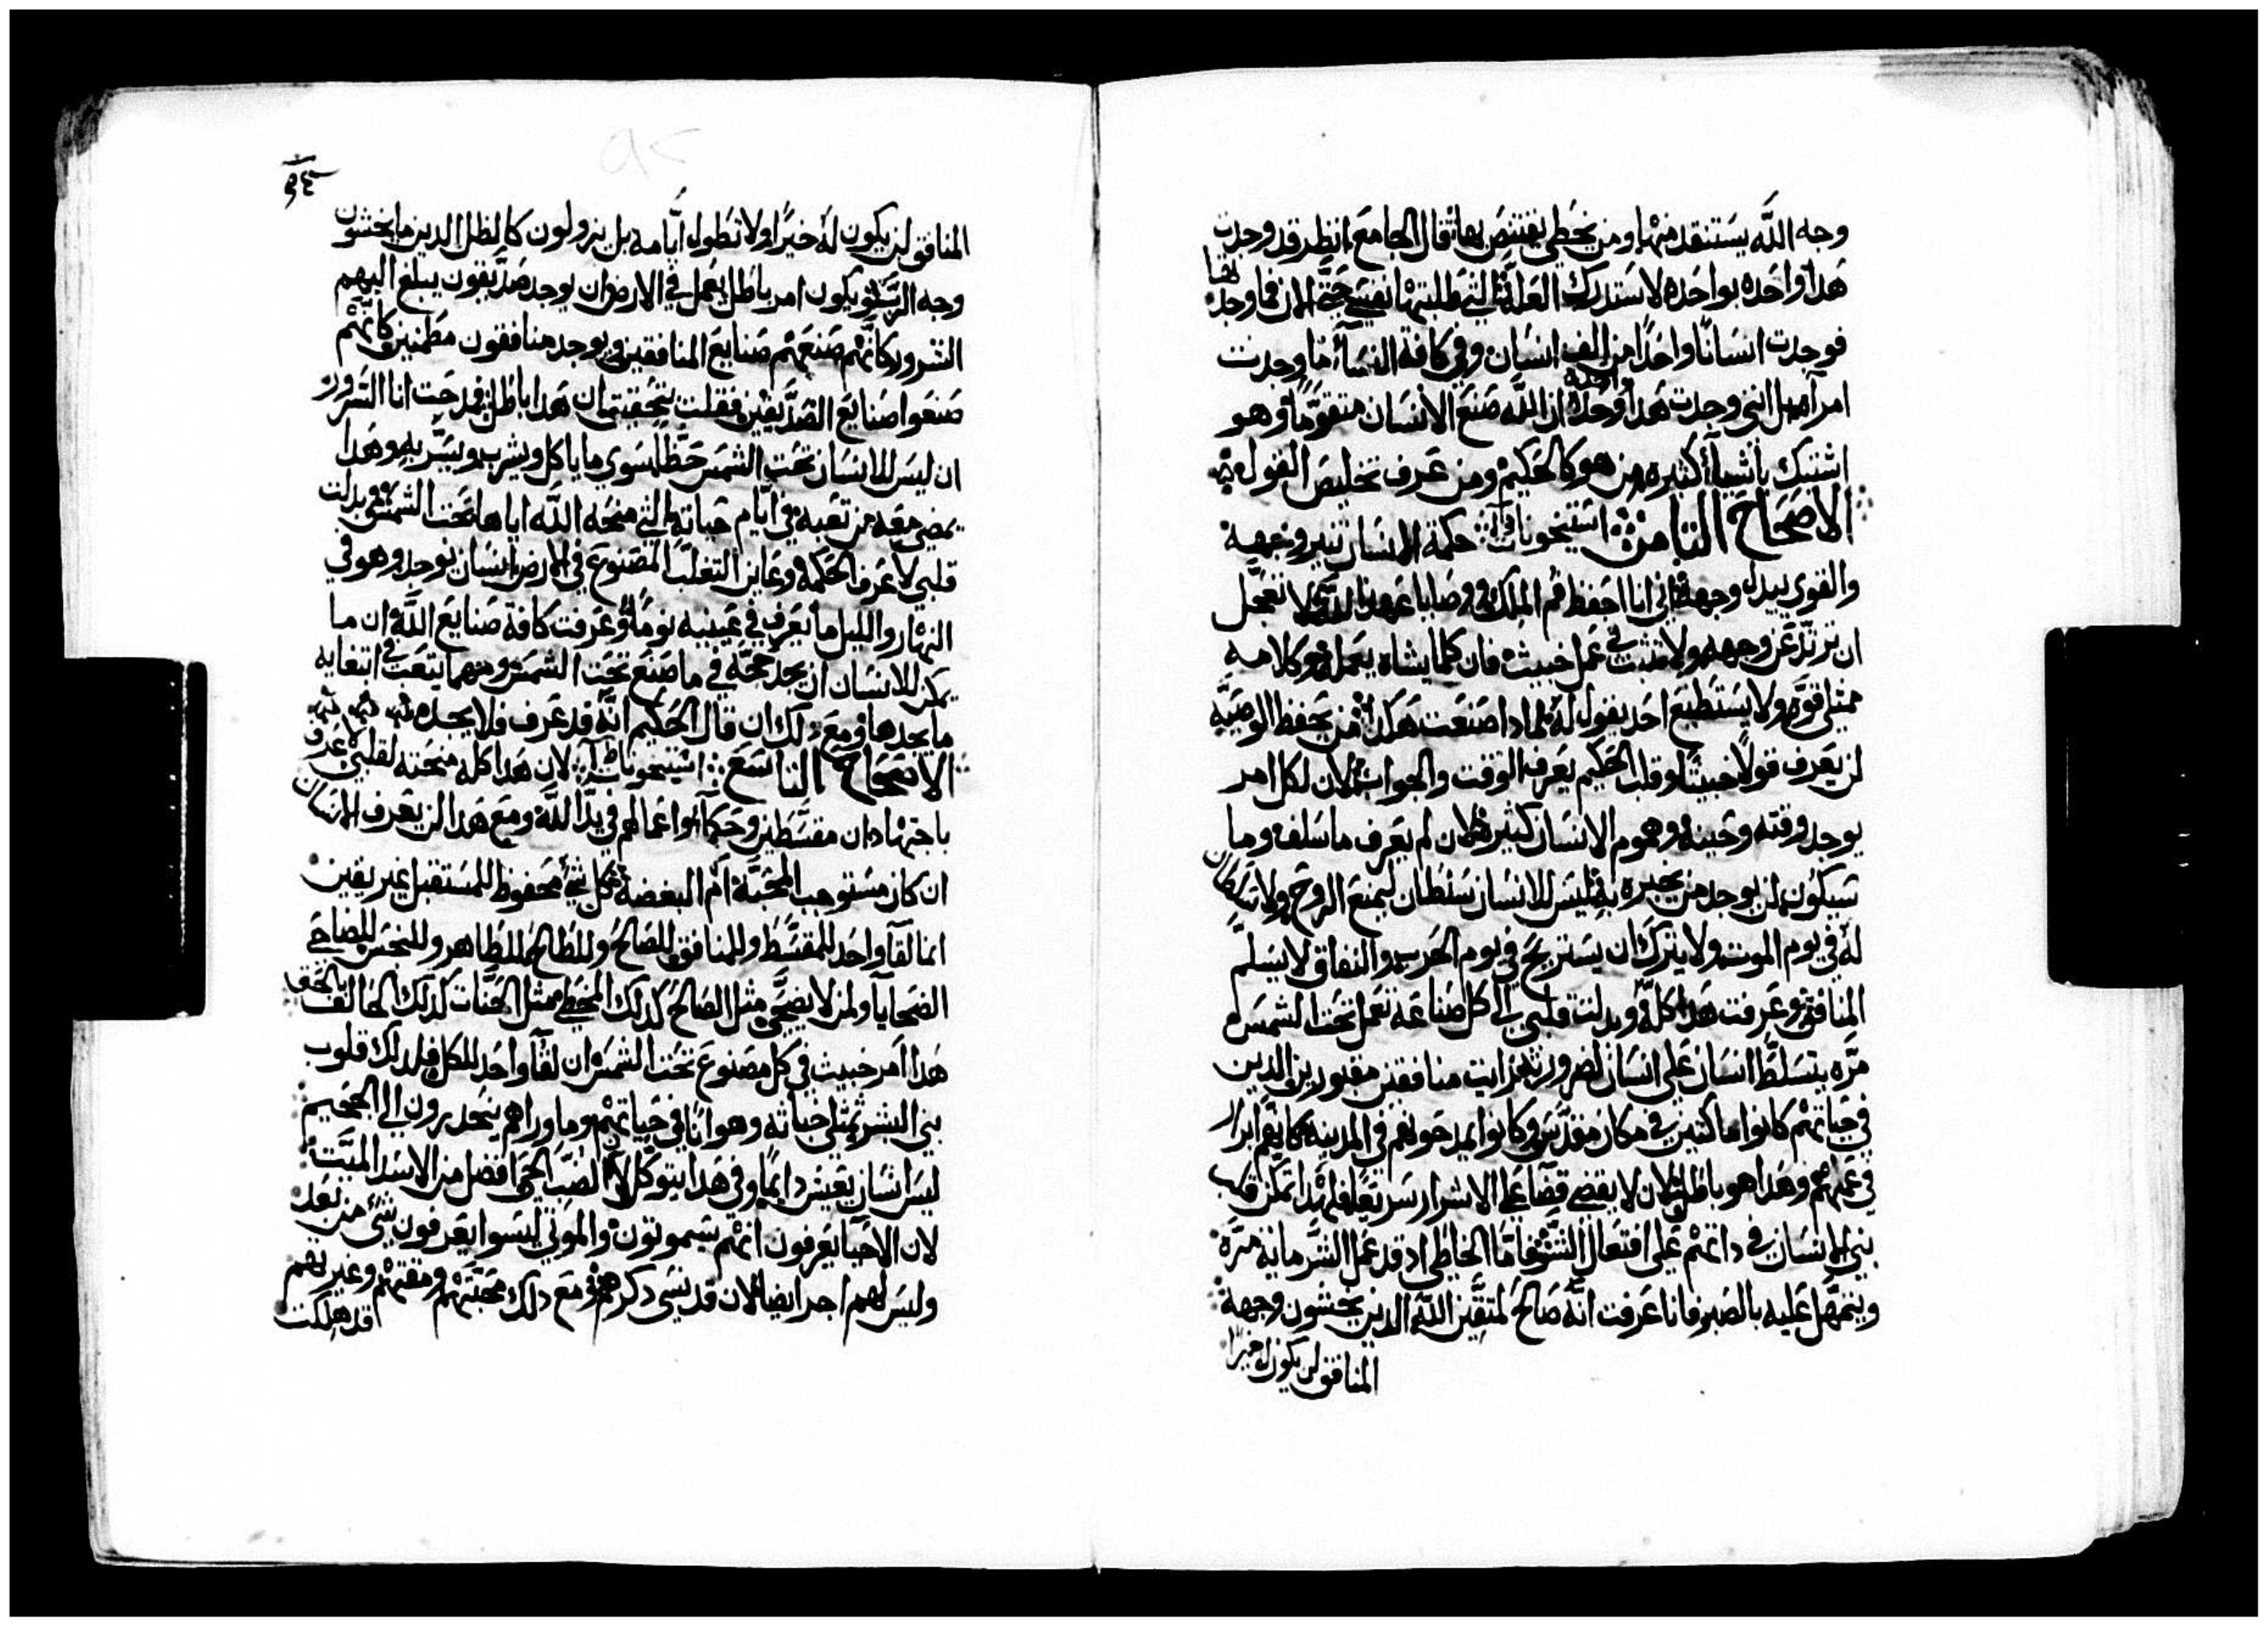 وجه الله يستنقد منها ومن يخطي يقتنص بها قال الجامع انظر قد وجدت
هدا واحده بواحده لاستدرك العلة التي طلبتها نفسي حتى الان فما وجدتها
فوجدت انسانًا واحدًا من الف انسان وفي كافة النسآء ما وجدت
امرآه بل انني وجدت هدا وحده ان الله صنع الانسان متقومًا وهو
اشتبك باشيآء كتيره من هو كالحكيم ومن عرف تخليص القول
الاصحاح التامن استيخونات حكمة الانسان تنير وجهه
والقوي يبدل وجهه اني انا احفظ فم الملك ووصايا عهود الله لا تعجل
ان ترتد عن وجهه ولا تتبت في عمل خبيث فان كلما يشاه يعمله وكلامه
ممتلي قوه ولا يستطيع احد يقول له لمادا صنعت هكدا من يحفظ الوصيه
لن يعرف قولًا خبيتًا وقلب الحكيم يعرف الوقت والجواب لان لكل امر
يوجد وقته وحينه وهموم الانسان كتيره لان لم يعرف ما سلف وما
سيكون لن يوجد من يخبره به ليس للانسان سلطان ليمنع الروح ولا سلطان
له في يوم الموت ولا يترك ان يستريح في يوم الحرب والنفاق لا يسلم
المنافق وعرفت هدا كله وبدلت قلبي الي كل صناعه تعمل تحت الشمس
مره يتسلط انسان على انسان لضرورته رايت منافقين مقبورين الدين
في حياتهم كانوا ماكتين في مكان مقدس وكانوا يمدحونهم في المدينه كانهم ابرار
في عملهم وهدا هو باطل لان لا يقضي قضآ على الاشرار سريعًا فلهدا تمكن قلب
بني الانسان في داتهم على افتعال الشر فاما الخاطي اد قد عمل الشر مايه مره
ويتمهل عليه بالصبر فانا عرفت انه صالح لمتقين الله الدين يخشون وجهه
المنافق لن يكون له خيرا
٩٤
المنافق لن يكون له خيرًا ولا تطول ايامه بل يزولون كالظل الدين ما يخشون
وجه الرب ويكون امر باطل يعمل في الارض ان يوجد صديقون يبلغ اليهم
الشرور كانهم صنعتهم صنايع المنافقين ويوجد منافقون مطمنين كانهم
صنعوا صنايع الصديقين فقلت بتحقيق ان هدا باطل فمدحت انا السرور
ان ليس للانسان تحت الشمس حظًا سوى ما ياكل ويشرب ويسر به وهدا
يمضي معه من تعبه في ايام حياته التي منحه الله اياها تحت الشمس وبدلت
قلبي لاعرف الحكمه وعاين التغلب المصنوع في الارض انسان يوجد وهو في
النهار والليل ما يعرف في عينيه نومًا وعرفت كافة صنايع الله ان ما
يمكن للانسان ان يجد حجه في ما صنع تحت الشمس ومهما يتعب في ابتغايه
ما يجدها ومع دلك ان قال الحكيم انه قد عرف فلا يجده
الاصحاح التاسع استيخونات لان هدا كله منحته لقلبي لاعرف
باجتهاد ان مقسطين وحكمآ واعمالهم في يد الله ومع هدا لن يعرف الانسان
ان كان مستوجب المحبة ام البغضة كل شي محفوظ للمستقبل غير يقين
انما لقآ واحد للمقسط وللمنافق للصالح وللطالح للطاهر وللنجس للضاحي
الضحايا ولمن لا يضحي مثل الصالح كدلك المخطي مثل الحنات كدلك الحالف بالحق
هدا امر خبيث في كل مصنوع تحت الشمس ان لقآ واحد للكل فلدلك قلوب
بني البشر تمتلي خباثه وهوانًا في حياتهم وما وراهم ينحدرون الى الجحيم
ليس انسان يعيش دايمًا وفي هدا يتوكل الكلب الحي افضل من الاسد الميت
لان الاحيا يعرفون انهم سيموتون والموتى ليسوا يعرفون شي من بعد
وليس لهم اجر ايضًا لان قد نسي دكرهم ومع دلك محبتهم ومقتهم وغيرتهم
قد هلكت